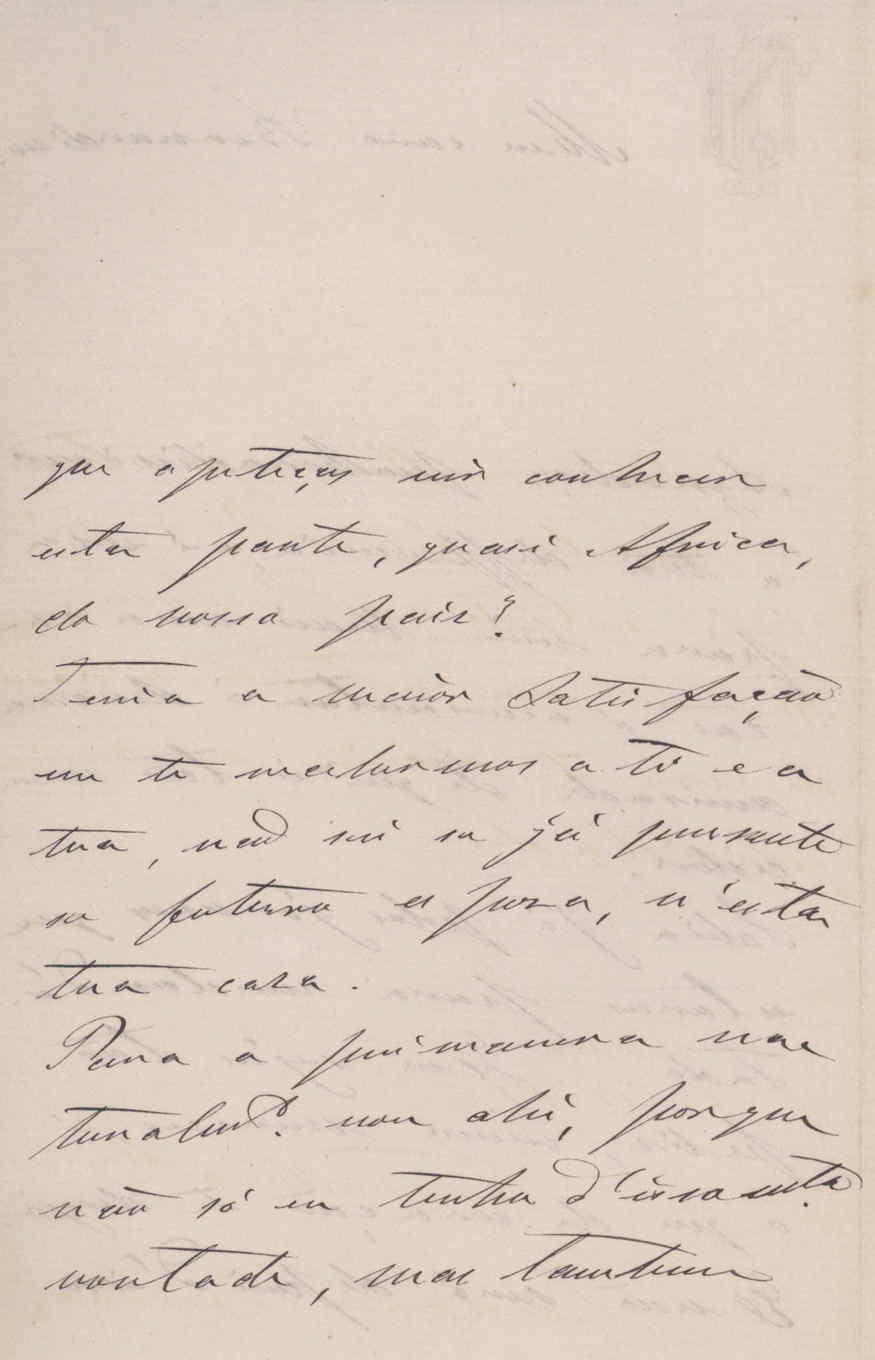 que apeteças vir conhecer
esta parte, quasi Africa,
do nosso paiz?
Teria a maior satisfação
em te recebermos a ti e a
tua, não sei se já presente
se futura esposa, n'esta
tua casa.
Para a primavera na
turalmte. vou ahi, porque
não só eu tenho d'isso mta.
vontade, mas tambem